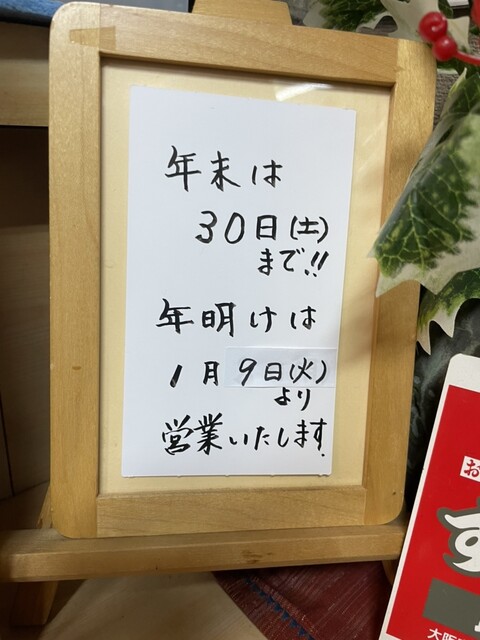 年末は
30日(土)
まで!!
年明けは
1月9日(火)
より
営業いたします.
お
す
大阪